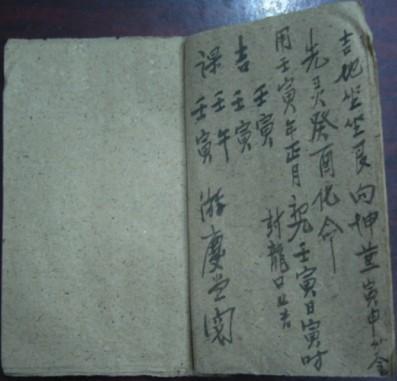 吉地坐坐艮向坤兼寅申分金
先灵癸酉化命
用壬寅年正月初九壬寅日寅时
封龍口大吉
壬寅
吉壬寅
壬午
课壬寅
游慶堂阅